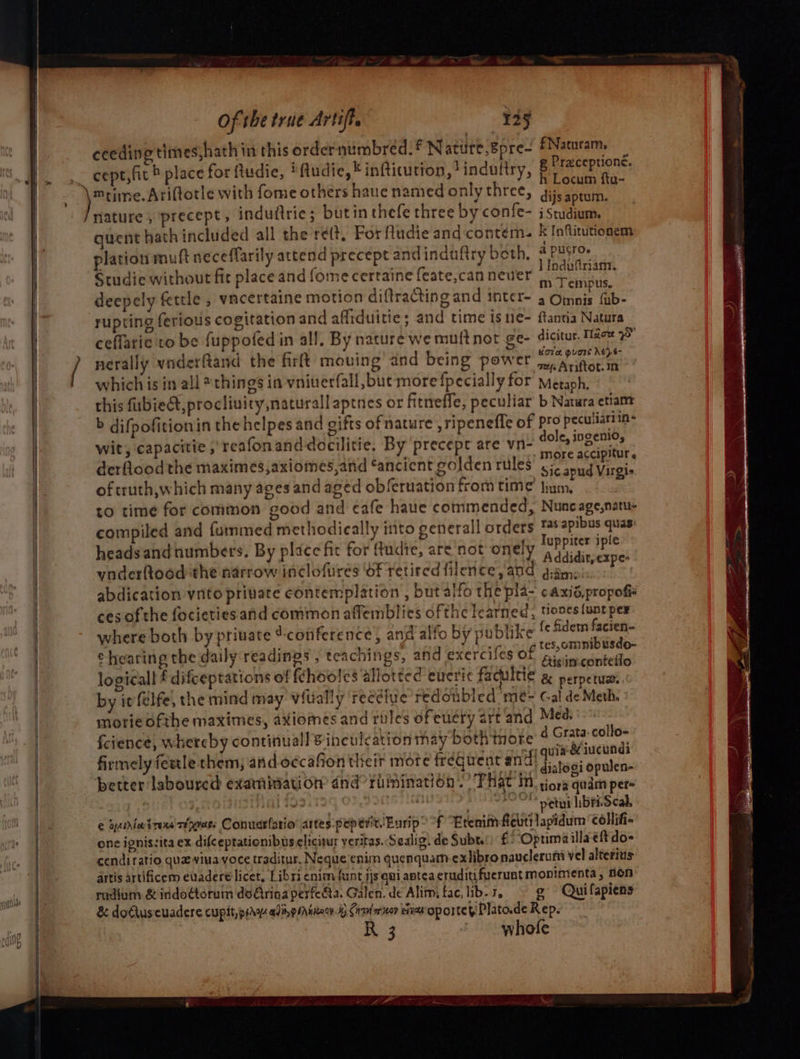 Of the true Artist. 125
ceeding times,hath in this order numbred. f Nature, g pre-
cept,fit h place for studie, i studie, k institution, l industry,
m time. Aristotle with some others haue named only three,
nature, precept, industrie; but in these three by conse-
quent hath included all the rest. For studie and contem-
plation must necessarily attend precept and industry both.
Studie without fit place and some certaine seate,can neuer
deepely settle, vncertaine motion distracting and inter-
rupting serious cogitation and assiduitie; and time is ne-
cessarie to be supposed in all. By nature we must not ge-
nerally vnderstand the first mouing and being power
which is in all a things in vniuersall,but more specially for
this subiect,procliuity,naturall aptnes or fitnesse, peculiar
b disposition in the helpes and gifts of nature, ripenesse of
wit, capacitie, reason and docilitie. By precept are vn-
derstood the maximes,axiomes,and c ancient golden rules
of truth,which many ages and aged obseruation from time
to time for common good and ease haue commended,
compiled and summed methodically into generall orders
heads and numbers. By place fit for studie, are not onely
vnderstood the narrow inclosures of retired silence, and
abdication vnto priuate contemplation, but also the pla-
ces of the societies and common assemblies of the learned,
where both by priuate d conference, and also by publike
e hearing the daily readings, teachings, and exercises of
logicall f disceptations of schooles allotted euerie facultie
by it selfe, the mind may vsually receiue redoubled me-
morie of the maximes, axiomes and rules of euery art and
science, whereby continuall g inculcation may both more
firmely settle them, and occasion their more frequent and
better laboured examination and rumination. That in
f Naturam.
g Præceptione.
h Locum stu-
dijs aptum.
i Studium.
k Institutionem
à puero.
l Industriam.
m Tempus.
a Omnis sub-
stantia Natura
dicitur.
Aristot. in
Metaph.
b Natura etiam
pro peculiari in-
dole, ingenio,
more accipitur.
Sic apud Virgi-
lium.
Nunc age,natu-
ras apibus quas
Iuppiter ipse
Addidit,expe-
diam.
c Axiō,proposi-
tiones sunt per
se fidem facien-
tes,omnibusdo-
ctis in confesso
& perpetuæ.
Gal de Meth.
Med.
d Grata collo-
quia & iucundi
dialogi opulen-
tiora quàm per-
petui libri. Scal.
e Conuersatio artes peperit. Eurip. f Etenim sicuti lapidum collisi-
one ignis:ita ex disceptationibus elicitur veritas. Scalig. de Subt. f Optima illa est do-
cendi ratio quæ viua voce traditur. Neque enim quenquam ex libro nauclerum vel alterius
artis artificem euadere licet. Libri enim sunt ijs qui antea eruditi fuerunt monimenta, non
rudium & indoctorum doctrina perfecta. Galen. de Alim, fac, lib. 1. g Qui sapiens
& doctus euadere cupit, oportet Plato.de Rep.
R 3 whose